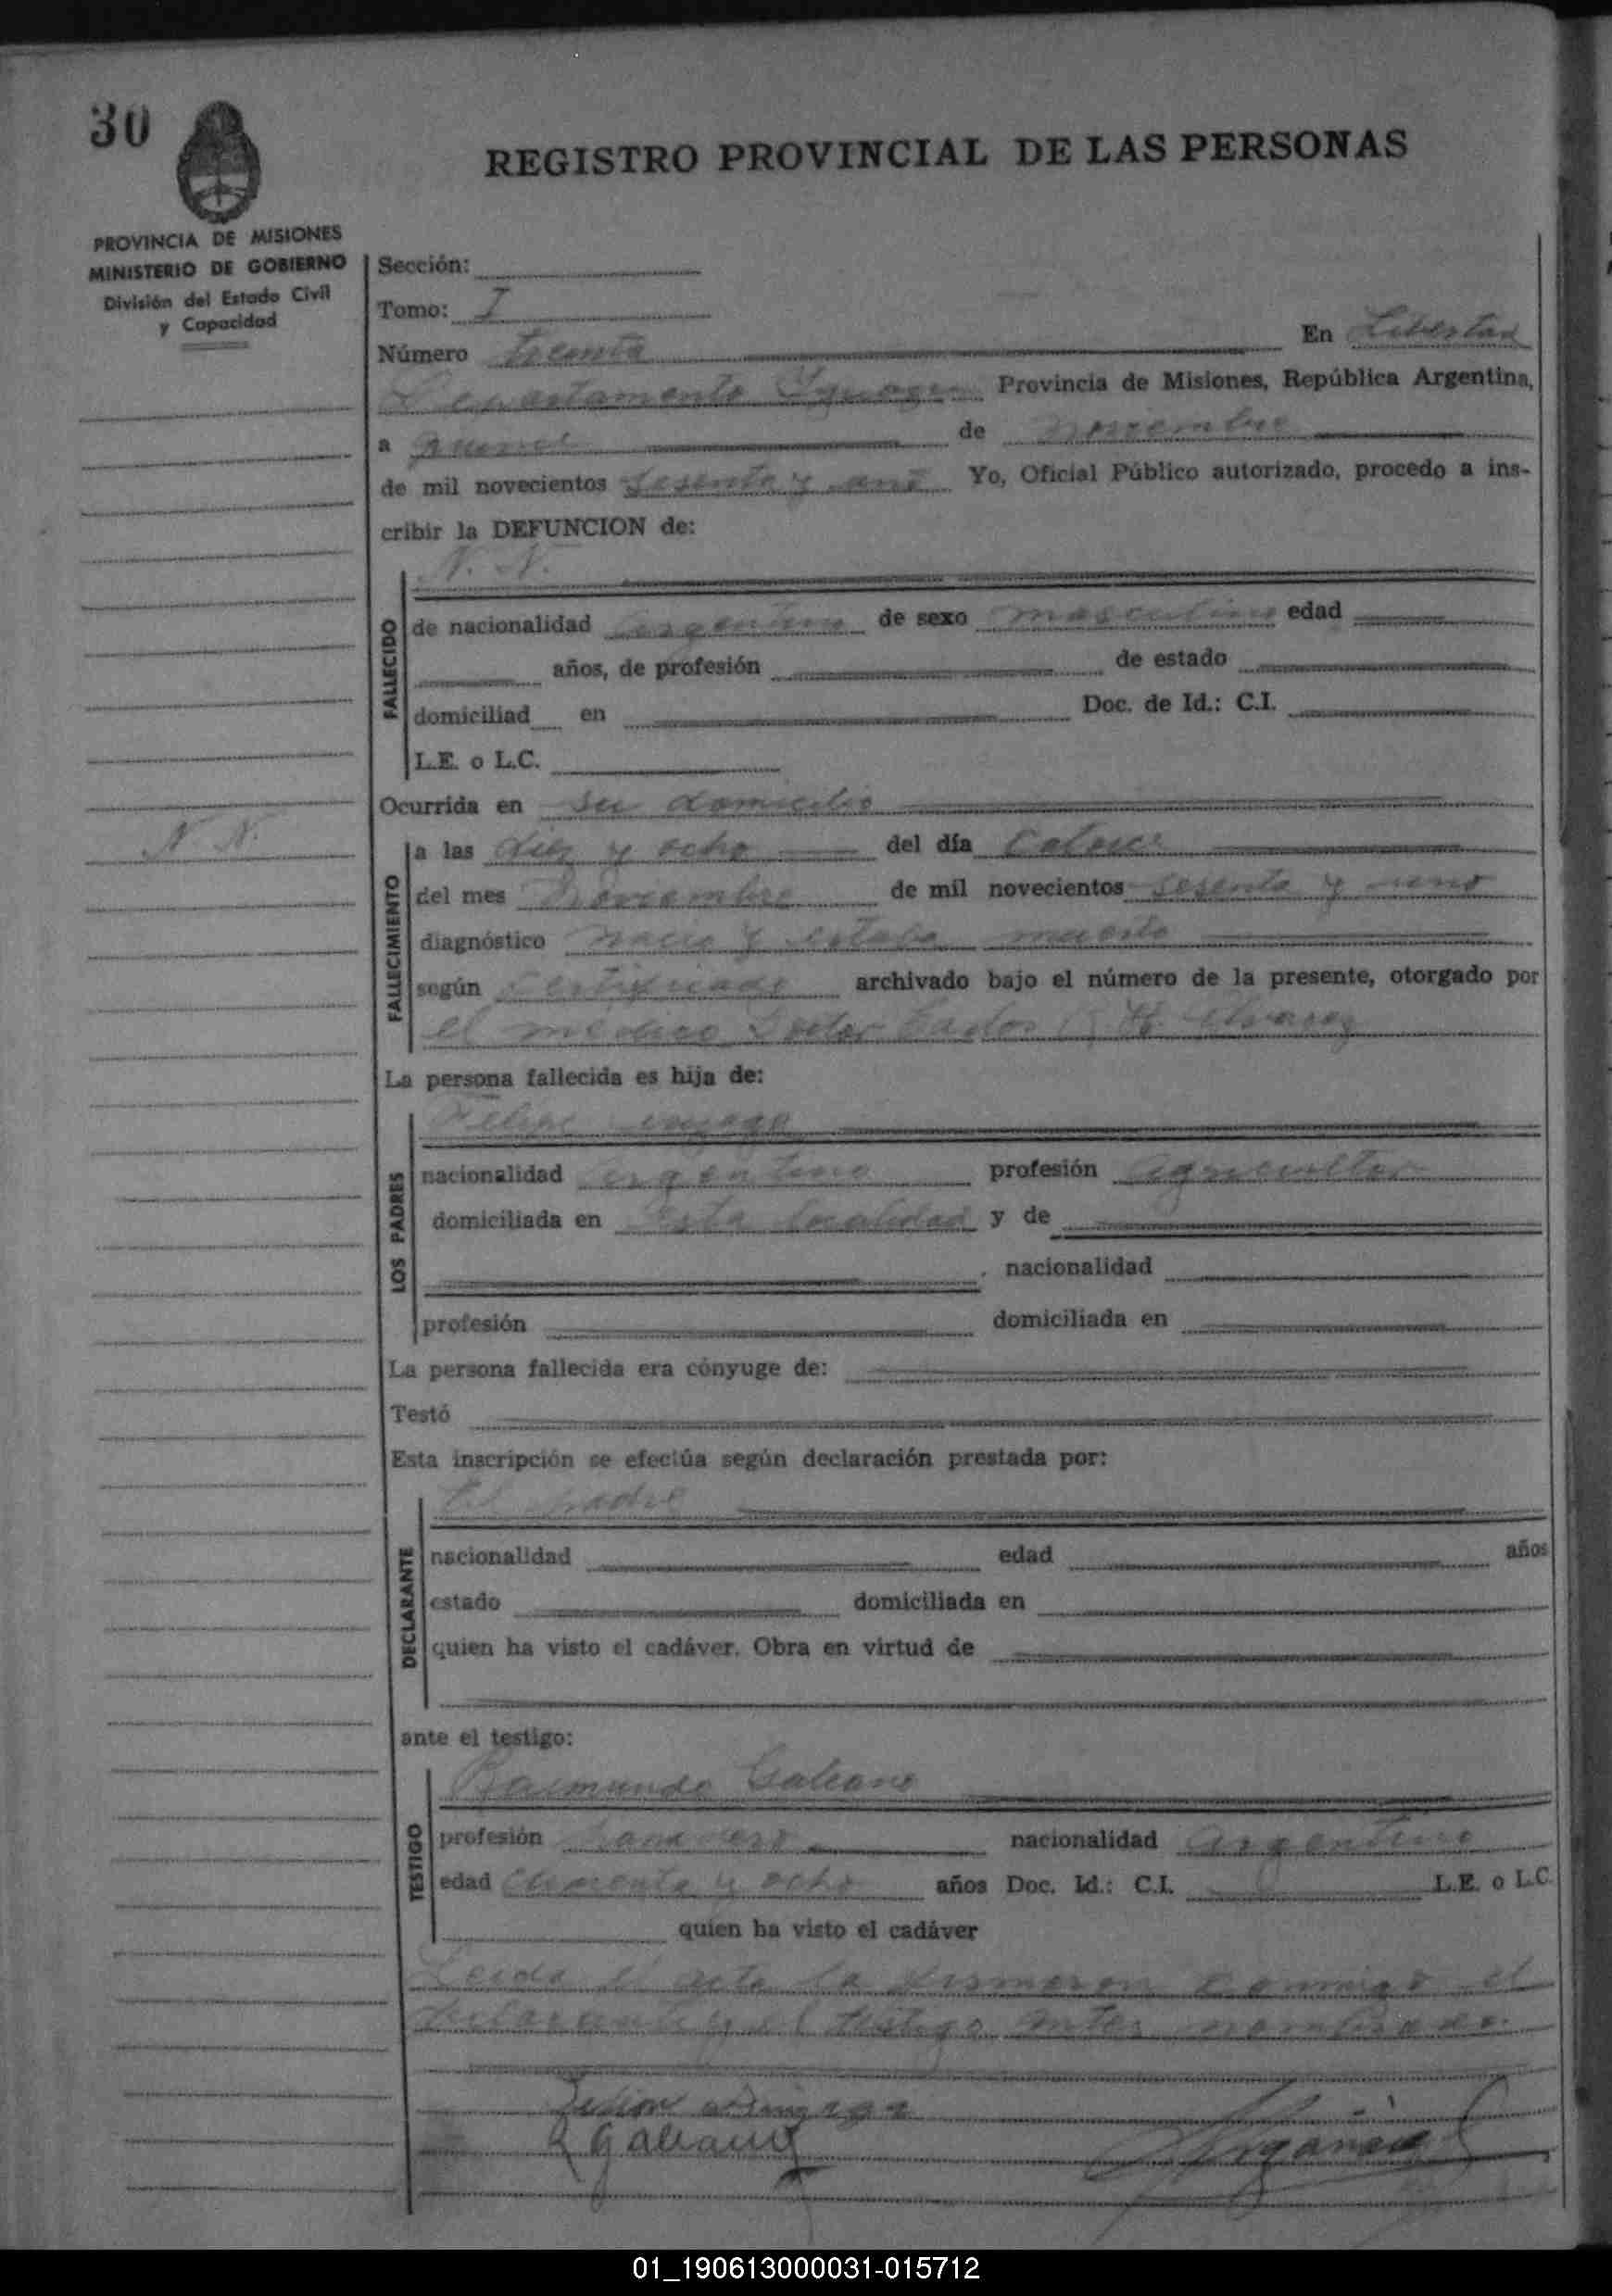 30
REGISTRO PROVINCIAL DE LAS PERSONAS
PROVINCIA DE MISIONES
MINISTERIO DE GOBIERNO
División del Estado Civil
y Capacidad
Sección:
Tomo: I
Número Treinta En Libertad
Departamento Iguazú Provincia de Misiones, República Argentina,
a quince de noviembre
de mil novecientos sesenta y uno Yo, Oficial Público autorizado, procedo a ins-
cribir la DEFUNCION de:
N. N.
FALLECIDO
de nacionalidad argentino de sexo masculino edad
años, de profesión de estado
domiciliad en Doc. de Id.: C.I.
L.E. o L.C.
Ocurrida en su domicilio
N. N.
FALLECIMIENTO
a las diez y ocho del día catorce
del mes noviembre de mil novecientos sesenta y uno
diagnóstico nacio y estaba muerto
según certificado archivado bajo el número de la presente, otorgado por
el médico Doctor Carlos H. Alvarez
La persona fallecida es hija de:
LOS PADRES
Felipe
nacionalidad argentino profesión agricultor
domiciliada en esta localidad y de
nacionalidad
profesión domiciliada en
La persona fallecida era cónyuge de:
Testó
Esta inscripción se efectúa según declaración prestada por:
DECLARANTE
El padre
nacionalidad edad años
estado domiciliada en
quien ha visto el cadáver. Obra en virtud de
ante el testigo:
TESTIGO
Raimundo Galeano
profesión nacionalidad argentino
edad cincuenta y ocho años Doc. Id.: C.I. L.E. o L.C.
quien ha visto el cadáver
Leida el acta la firmaron conmigo el
declarante y el testigo antes nombrado.
R Galeano
01_190613000031-015712